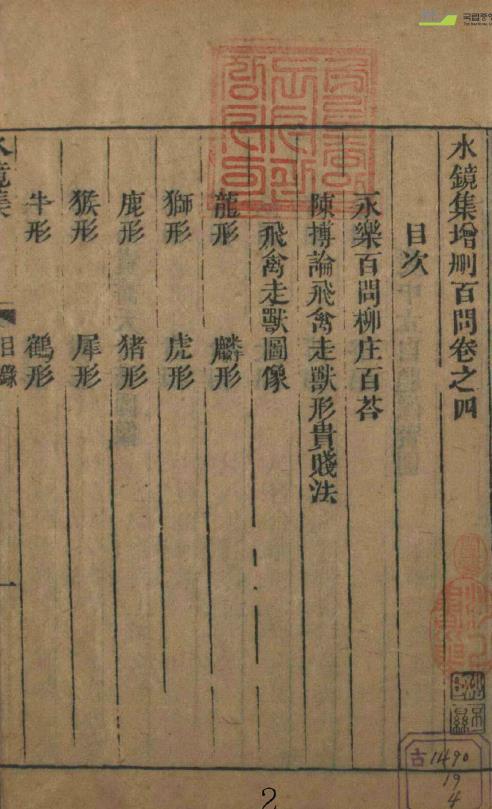 水鏡集增刪百問卷之四
目次
永樂百問柳庄百荅
陳摶論飛禽走獸形貴賤法
飛禽走獸圖像
龍形 麟形
獅形 虎形
鹿形 猪形
猴形 犀形
牛形 鶴形
水鏡集 目錄 一
古1490
19
4
2